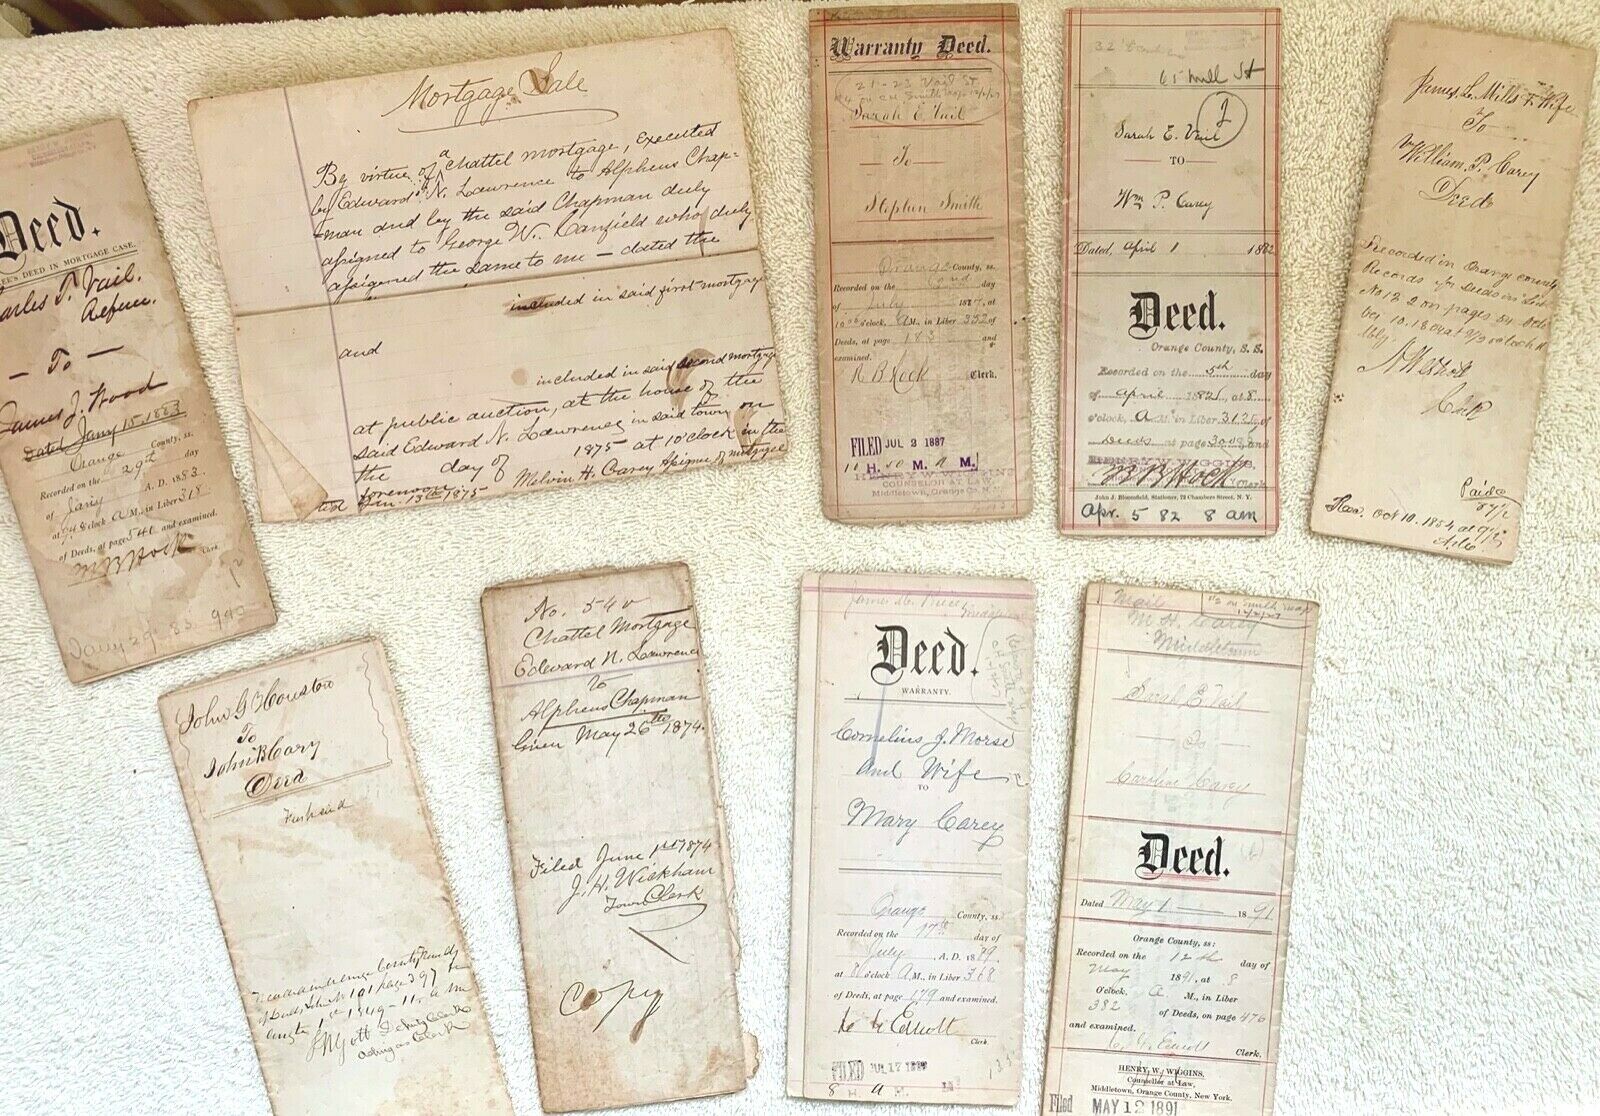 Deed.
EE'S DEED IN MORTGAGE CASE.
Charles T. Vail.
Referee.
— To —
James J. Wood
Dated Jany 15. 1883
Orange County, ss.
Recorded on the 29th day
of Jany A. D. 1883
at 9 o'clock A M., in Liber 318
of Deeds, at page 540 and examined.
Clerk.
Jany 29. 83. 9
Mortgage Sale
By virtue of a chattel mortgage, executed
by Edward N. Lawrence to Alpheus Chap-
-man and by the said Chapman duly
assigned to George W. Canfield who duly
assigned the same to me — dated the
included in said first mortgage
and
included in said second mortgage
at public auction, at the house of the
said Edward N. Lawrence in said town on
the day of 1875 at 10 o'clock in the
forenoon
Jan. 13th 1875 Melvin H. Carey Assignee of mortgage
Warranty Deed.
21-23 Vail St
Sarah E. Vail
— To —
Stephen Smith
Orange County, ss.
Recorded on the 2nd day
of July 1887 at
10 o'clock, A M., in Liber 332 of
Deeds, at page 183 and
examined.
Clerk.
FILED JUL 2 1887
10 H. 50 M. A M.
HENRY W. WIGGINS
COUNSELOR AT LAW,
Middletown, Orange Co. N. Y.
65 Mill St
Sarah E. Vail
2
TO
Wm P. Carey
Dated, April 1 1882
Deed.
Orange County, S. S.
Recorded on the 5th day
of April 1882, at 8
o'clock, A M. in Liber 312 of
Deeds at page 308 and
HENRY W. WIGGINS,
Clerk
John J. Bloomfield, Stationer, 72 Chambers Street, N. Y.
Apr. 5 82 8 am
James L. Mills & Wife
To
William P. Carey
Deed
Recorded in Orange County
Records of Deeds in Liber
No 122 on pages 84 Octo
ber 10. 1854 at 9 1/2 o'clock A
Clerk
Paid
87 1/2
Rec. Oct 10. 1854 at 9 1/2
John G Houston
To
John B Cary
Deed
of Deeds Liber No 101 page 397
1st 1849 - 11. a m
Deputy Clerk
acting as Clerk
No. 540
Chattel Mortgage
Edward N. Lawrence
To
Alpheus Chapman
Given May 26th 1874.
Filed June 1st 1874
J. H. Wickham
Town Clerk
Copy
Deed.
WARRANTY.
Cornelius J. Morse
and Wife
TO
Mary Carey
Orange County, ss.
Recorded on the 17th day of
July A. D. 1889
at 8 o'clock A M., in Liber 368
of Deeds, at page 179 and examined.
Elliott
Clerk.
FILED JUL 17 1889
8 H A M
Mail
M. H. Carey
Middletown
Sarah E. Vail
To
Caroline Carey
Deed.
Dated May 1 1891
Orange County, ss:
Recorded on the 12th day of
May 1891, at 8
O'clock, A M., in Liber
382 of Deeds, on page 476
and examined.
Elliott Clerk.
HENRY W. WIGGINS,
Counsellor at Law,
Middletown, Orange County, New York.
Filed MAY 12 1891